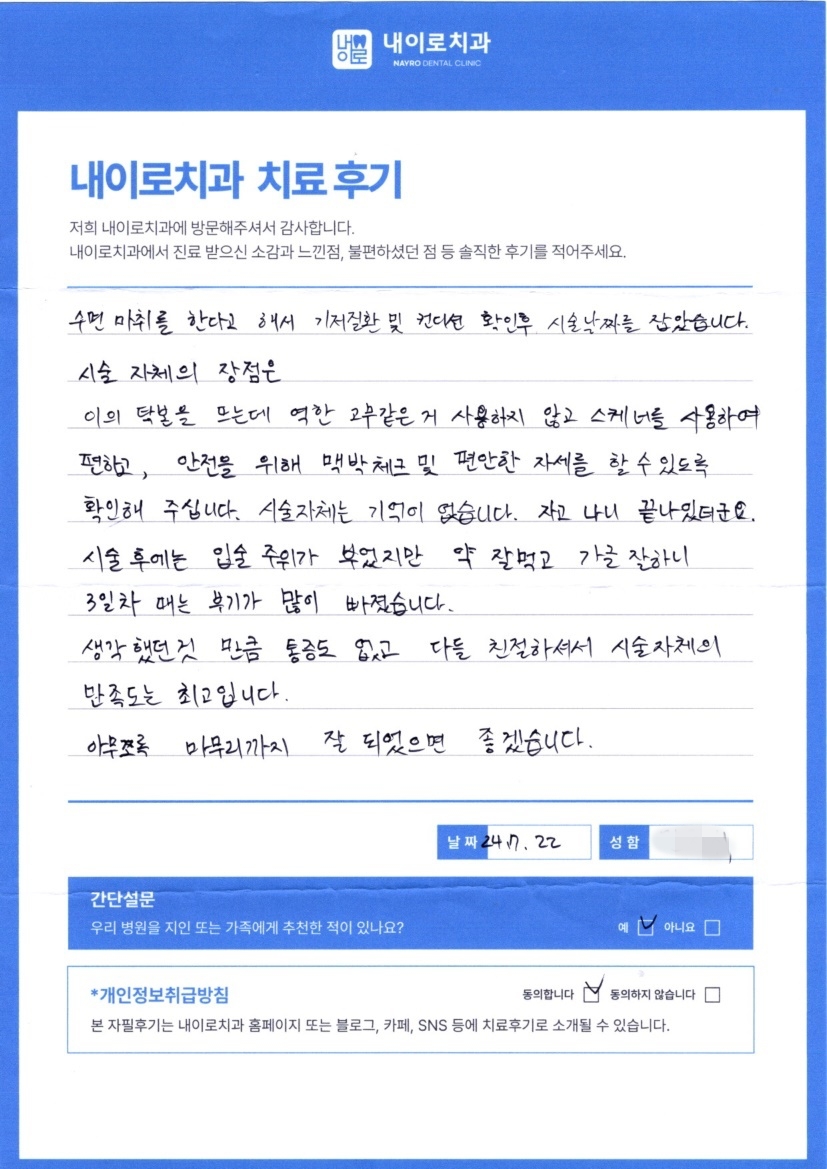 내이로
내이로치과
NAYRO DENTAL CLINIC
내이로치과 치료 후기
저희 내이로치과에 방문해주셔서 감사합니다.
내이로치과에서 진료 받으신 소감과 느낀점, 불편하셨던 점 등 솔직한 후기를 적어주세요.
수면 마취를 한다고 해서 기저질환 및 컨디션 확인후 시술날짜를 잡았습니다.
시술 자체의 장점은
이의 탁본을 뜨는데 역한 고무같은 거 사용하지 않고 스케너를 사용하여
편하고, 안전을 위해 맥박체크 및 편안한 자세를 할 수 있도록
확인해 주십니다. 시술자체는 기억이 없습니다. 자고 나니 끝나있더군요.
시술 후에는 입술 주위가 부었지만 약 잘먹고 가글 잘하니
3일차 때는 부기가 많이 빠졌습니다.
생각했던것 만큼 통증도 없고 다들 친절하셔서 시술자체의
만족도는 최고입니다.
아무쪼록 마무리까지 잘 되었으면 좋겠습니다.
날 짜 24.7.22 성 함
간단설문
우리 병원을 지인 또는 가족에게 추천한 적이 있나요? 예 아니요
*개인정보취급방침 동의합니다 동의하지 않습니다
본 자필후기는 내이로치과 홈페이지 또는 블로그, 카페, SNS 등에 치료후기로 소개될 수 있습니다.